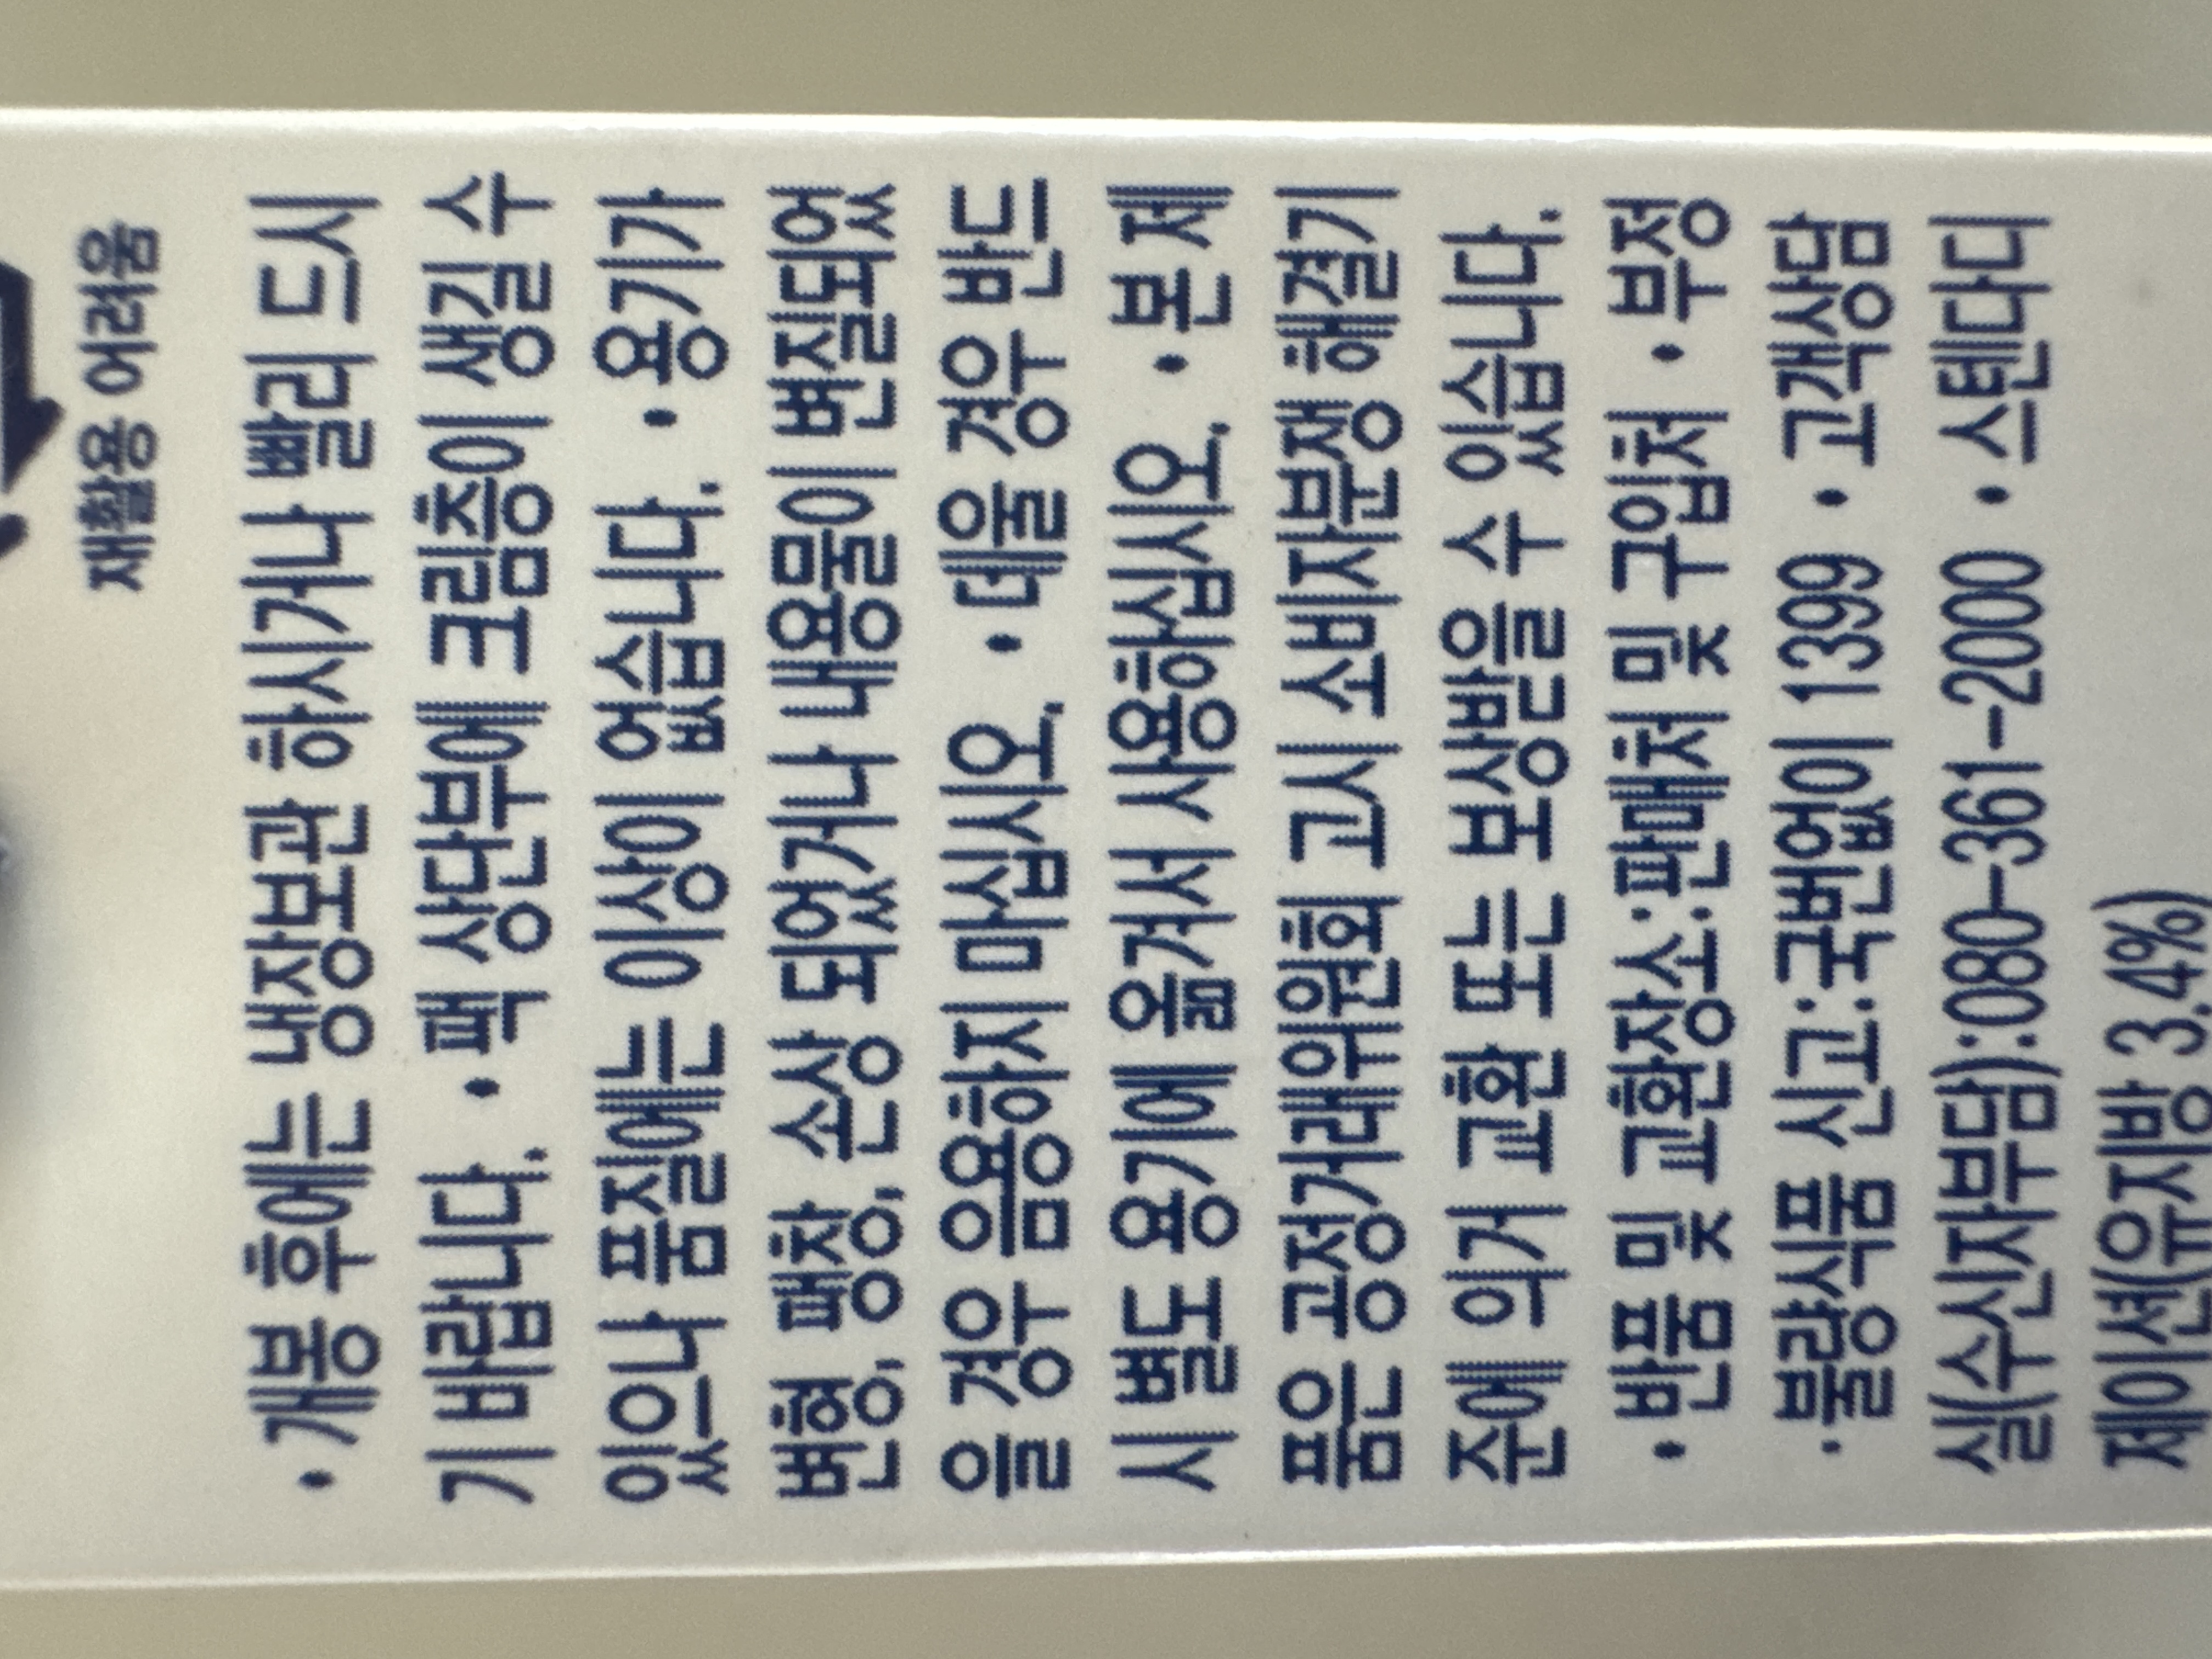 재활용 어려움
• 개봉 후에는 냉장보관 하시거나 빨리 드시
기 바랍니다. • 팩 상단부에 크림층이 생길 수
있으나 품질에는 이상이 없습니다. • 용기가
변형, 팽창, 손상 되었거나 내용물이 변질되었
을 경우 음용하지 마십시오. • 데울 경우 반드
시 별도 용기에 옮겨서 사용하십시오. • 본 제
품은 공정거래위원회 고시 소비자분쟁 해결기
준에 의거 교환 또는 보상받을 수 있습니다.
• 반품 및 교환장소:판매처 및 구입처 • 부정
·불량식품 신고:국번없이 1399 • 고객상담
실(수신자부담):080-361-2000 • 스텐다디
제이션(유지방 3.4%)